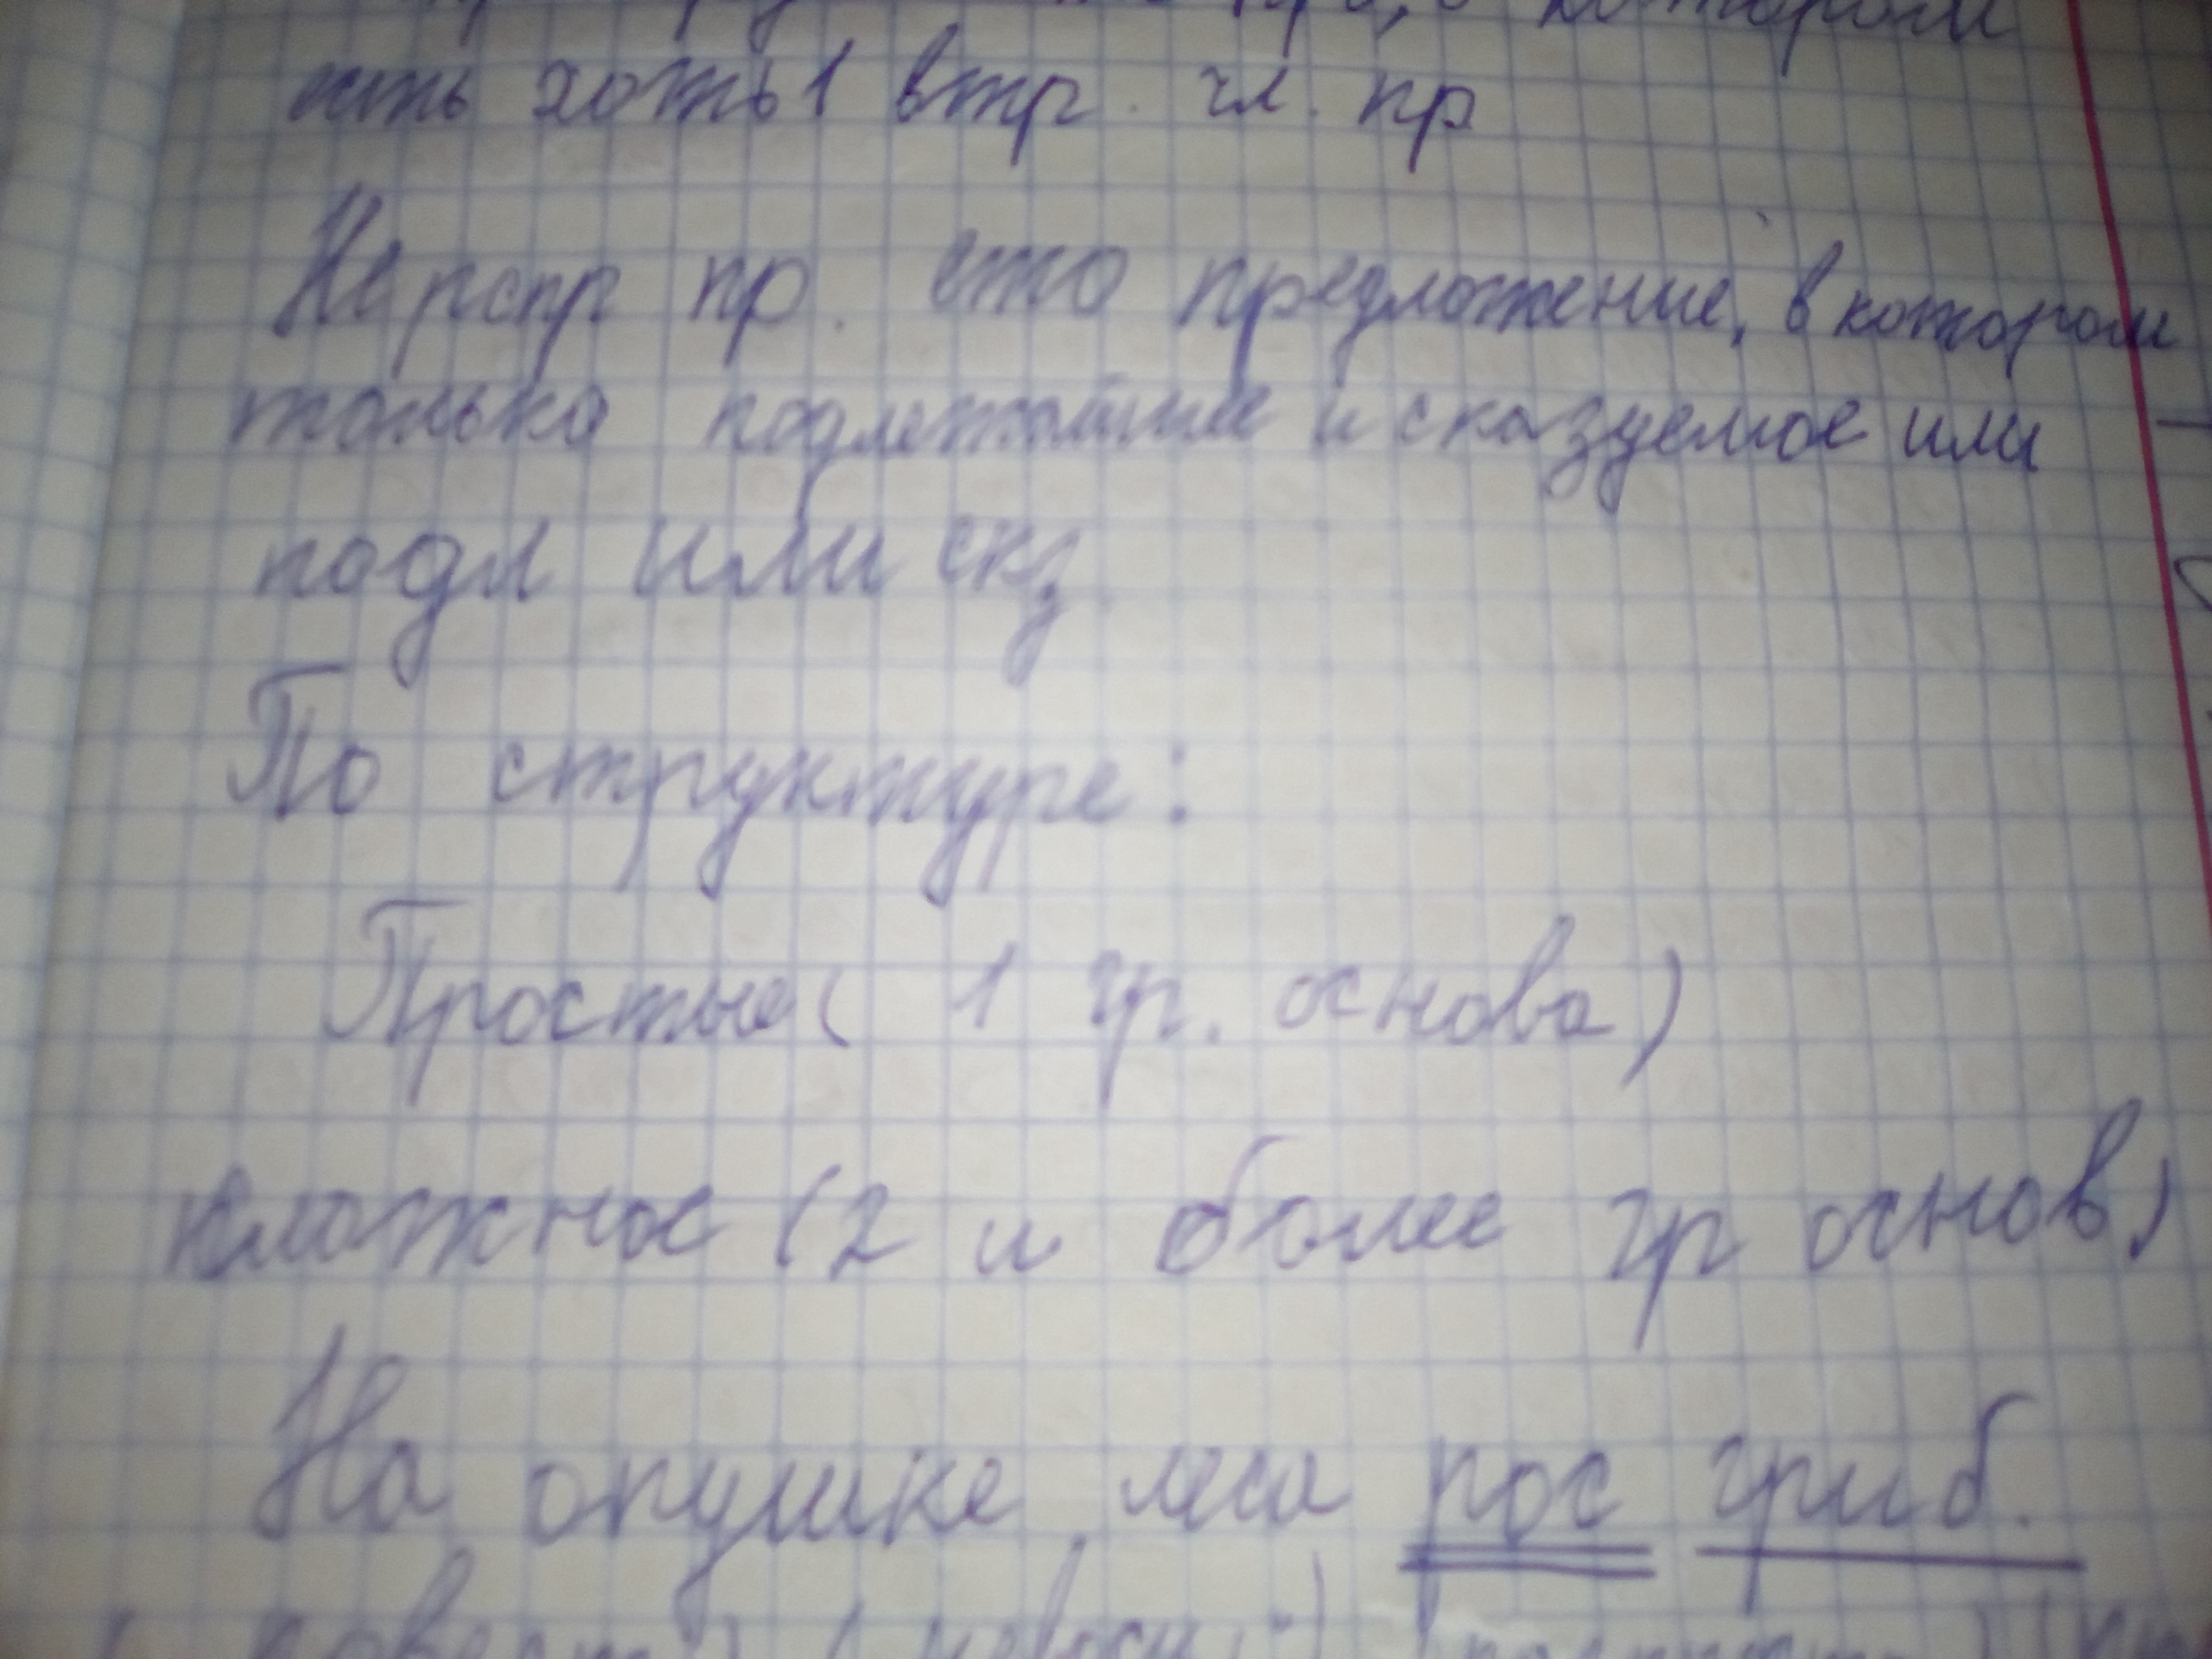 котором
есть хоть 1 втр. чл. пр
Нерспр пр. ето предложение, в котором
только подлежащие и сказуемое или
подл или скз
По структуре:
Простые ( 1 гр. основа)
сложное (2 и более гр основ)
На опушке леса рос гриб.